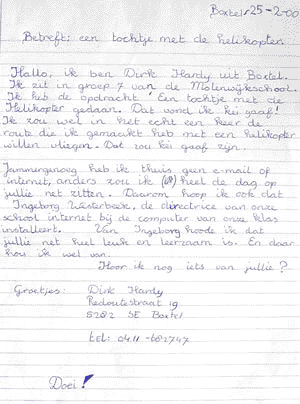 Boxtel, 25-2-00
Betreft: een tochtje met de helikopter.
Hallo, ik ben Dirk Hardy uit Boxtel.
Ik zit in groep 7 van de Molenwijkschool.
Ik heb de opdracht! Een tochtje met de
Helikopter gedaan. Dat vond ik kei gaaf!
Ik zou wel in het echt een keer de
route die ik gemaakt heb met een helikopter
willen vliegen. Dat zou kei gaaf zijn.
Jammergenoeg heb ik thuis geen e-mail of
internet, anders zou ik heel de dag op
jullie net zitten. Daarom hoop ik ook dat
Ingeborg Westerbeek, de directrice van onze
school internet bij de computer van onze klas
installeert. Van Ingeborg hoorde ik dat
jullie net heel leuk en leerzaam is. En daar
hou ik wel van.
Hoor ik nog iets van jullie?
Groetjes: Dirk Hardy
Redoutestraat 19
5282 SE Boxtel
tel: 0411-682747
Doei!